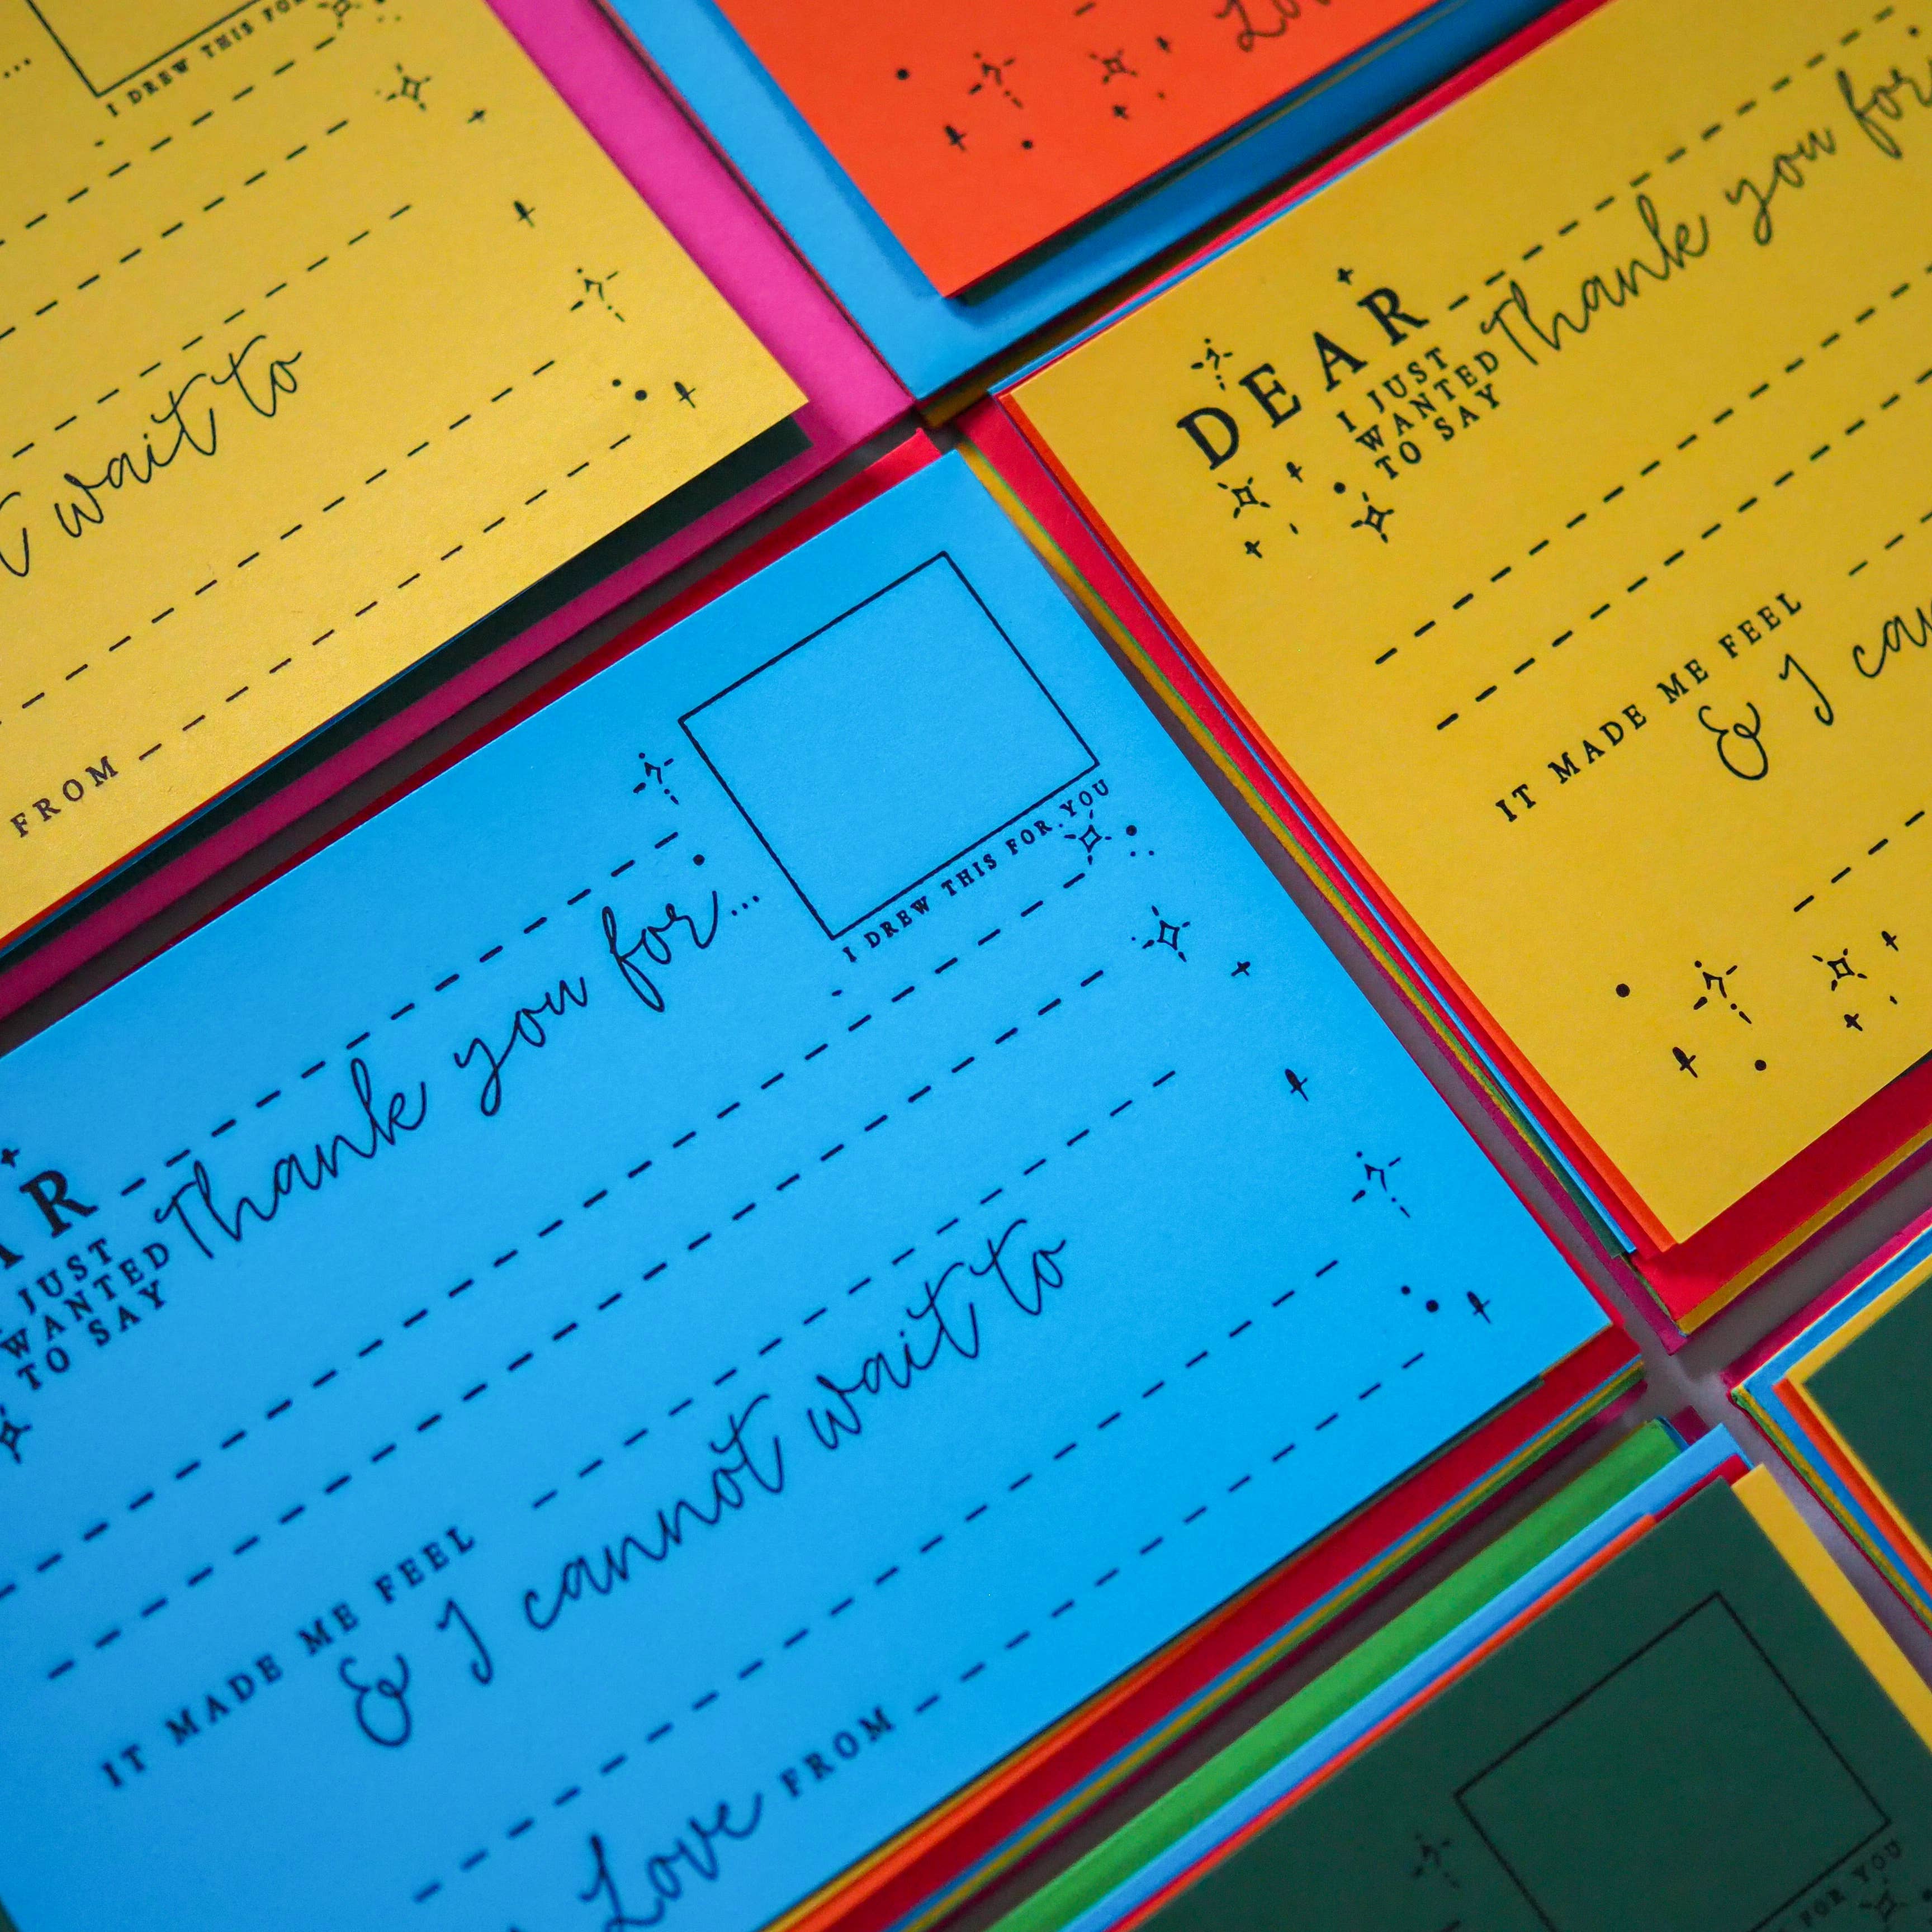 I DREW THIS FOR
...
wait to
FROM
DEAR
I JUST
WANTED
TO SAY
Thank you for
IT MADE ME FEEL
& I
I DREW THIS FOR YOU
R
JUST
WANTED
TO SAY
Thank you for...
IT MADE ME FEEL
& I cannot wait to
Love FROM
FOR YOU